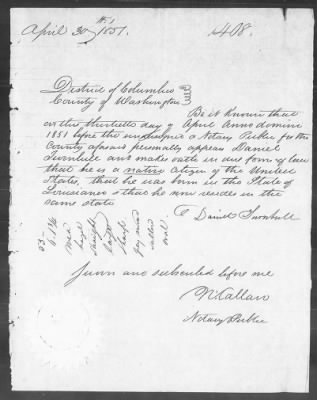 April 30th 1851.
1408.
District of Columbia
County of Washington
Be it Known that
on this thirtieth day of April Anno domini
1851 before the undersigned a Notary Public for the
County aforesaid personally appeared Daniel
Turnbull and makes oath in due form of law
that he is a native citizen of the United
States, that he was born in the State of
Louisiana & that he now resides in the
same state
Daniel Turnbull
53
hazel
straight
large
sharp
oval
Sworn and subscribed before me
N Callan
Notary Public